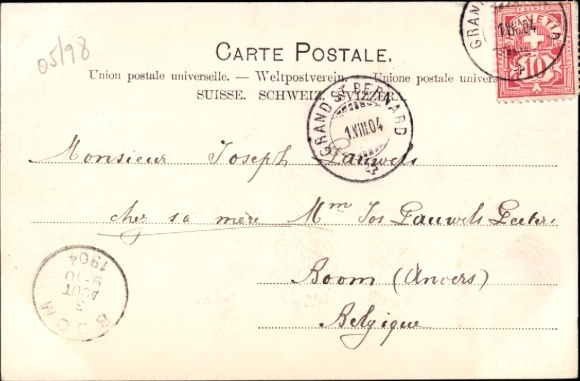 05/98
CARTE POSTALE.
Union postale universelle. — Weltpostverein. — Unione postale univers
SUISSE. SCHWEIZ. SVIZZERA.
GRAN
1.VIII.04
FRANCO
HELVETIA
10
GRAND ST BERNARD
1.VIII.04
Monsieur Joseph Pauwels
chez sa mère Mm Jos Pauwels Peeters
Boom (Anvers)
Belgique
BOOM
3
AOUT
9-10
1904